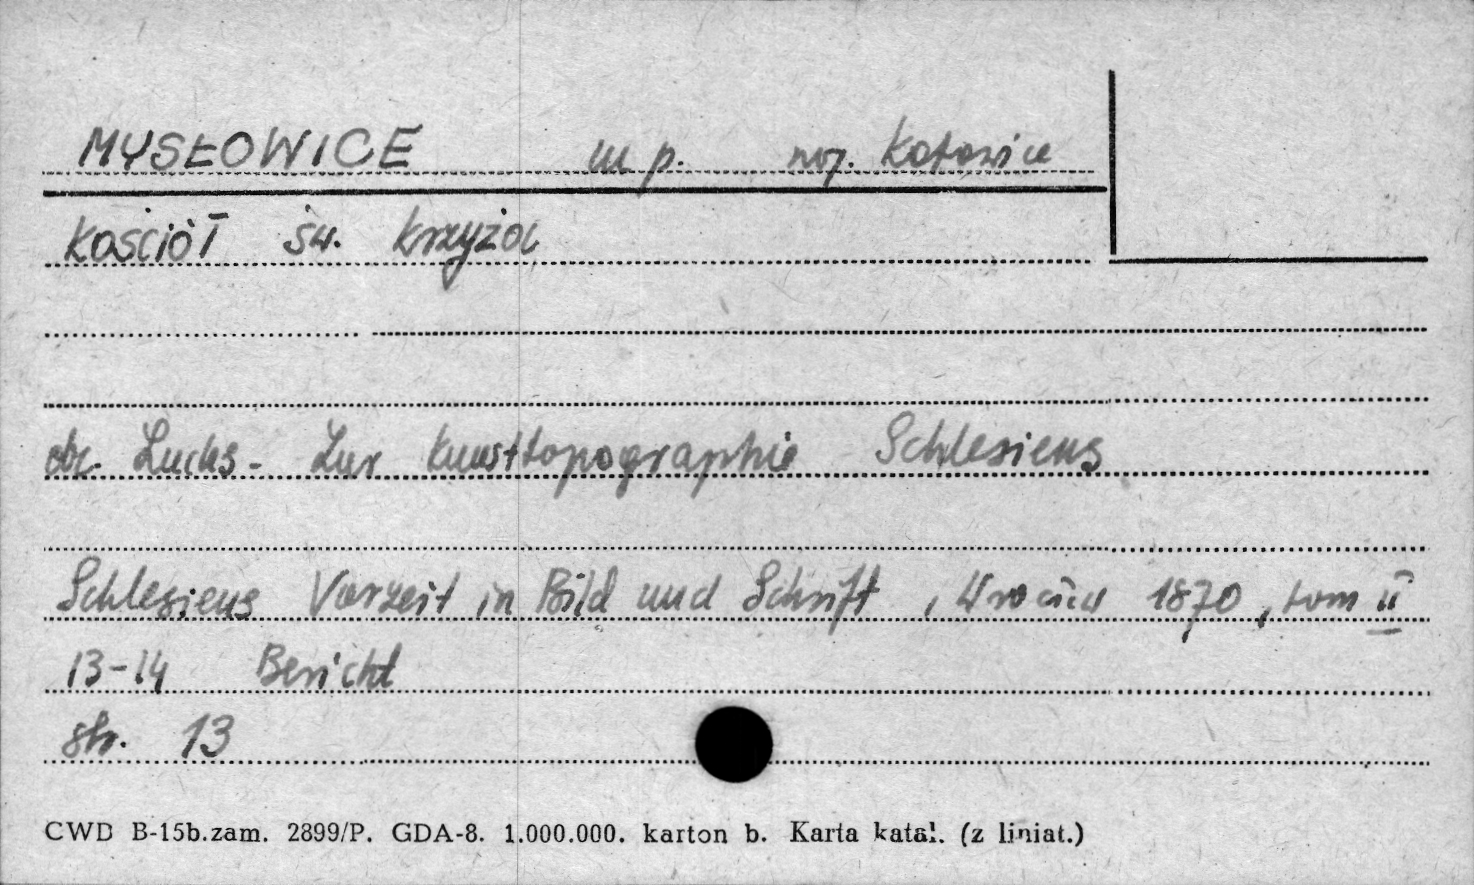 MYSŁOWICE m p. woj. Katowice
Kościół św. Krzyża
dr. Luchs - Zur Kunsttopographie Schlesiens
Schlesiens Vorzeit in Bild und Schrift, Wrocław 1870, tom II
13-14 Bericht
str. 13
CWD B-15b.zam. 2899/P. GDA-8. 1.000.000. karton b. Karta katal. (z liniat.)